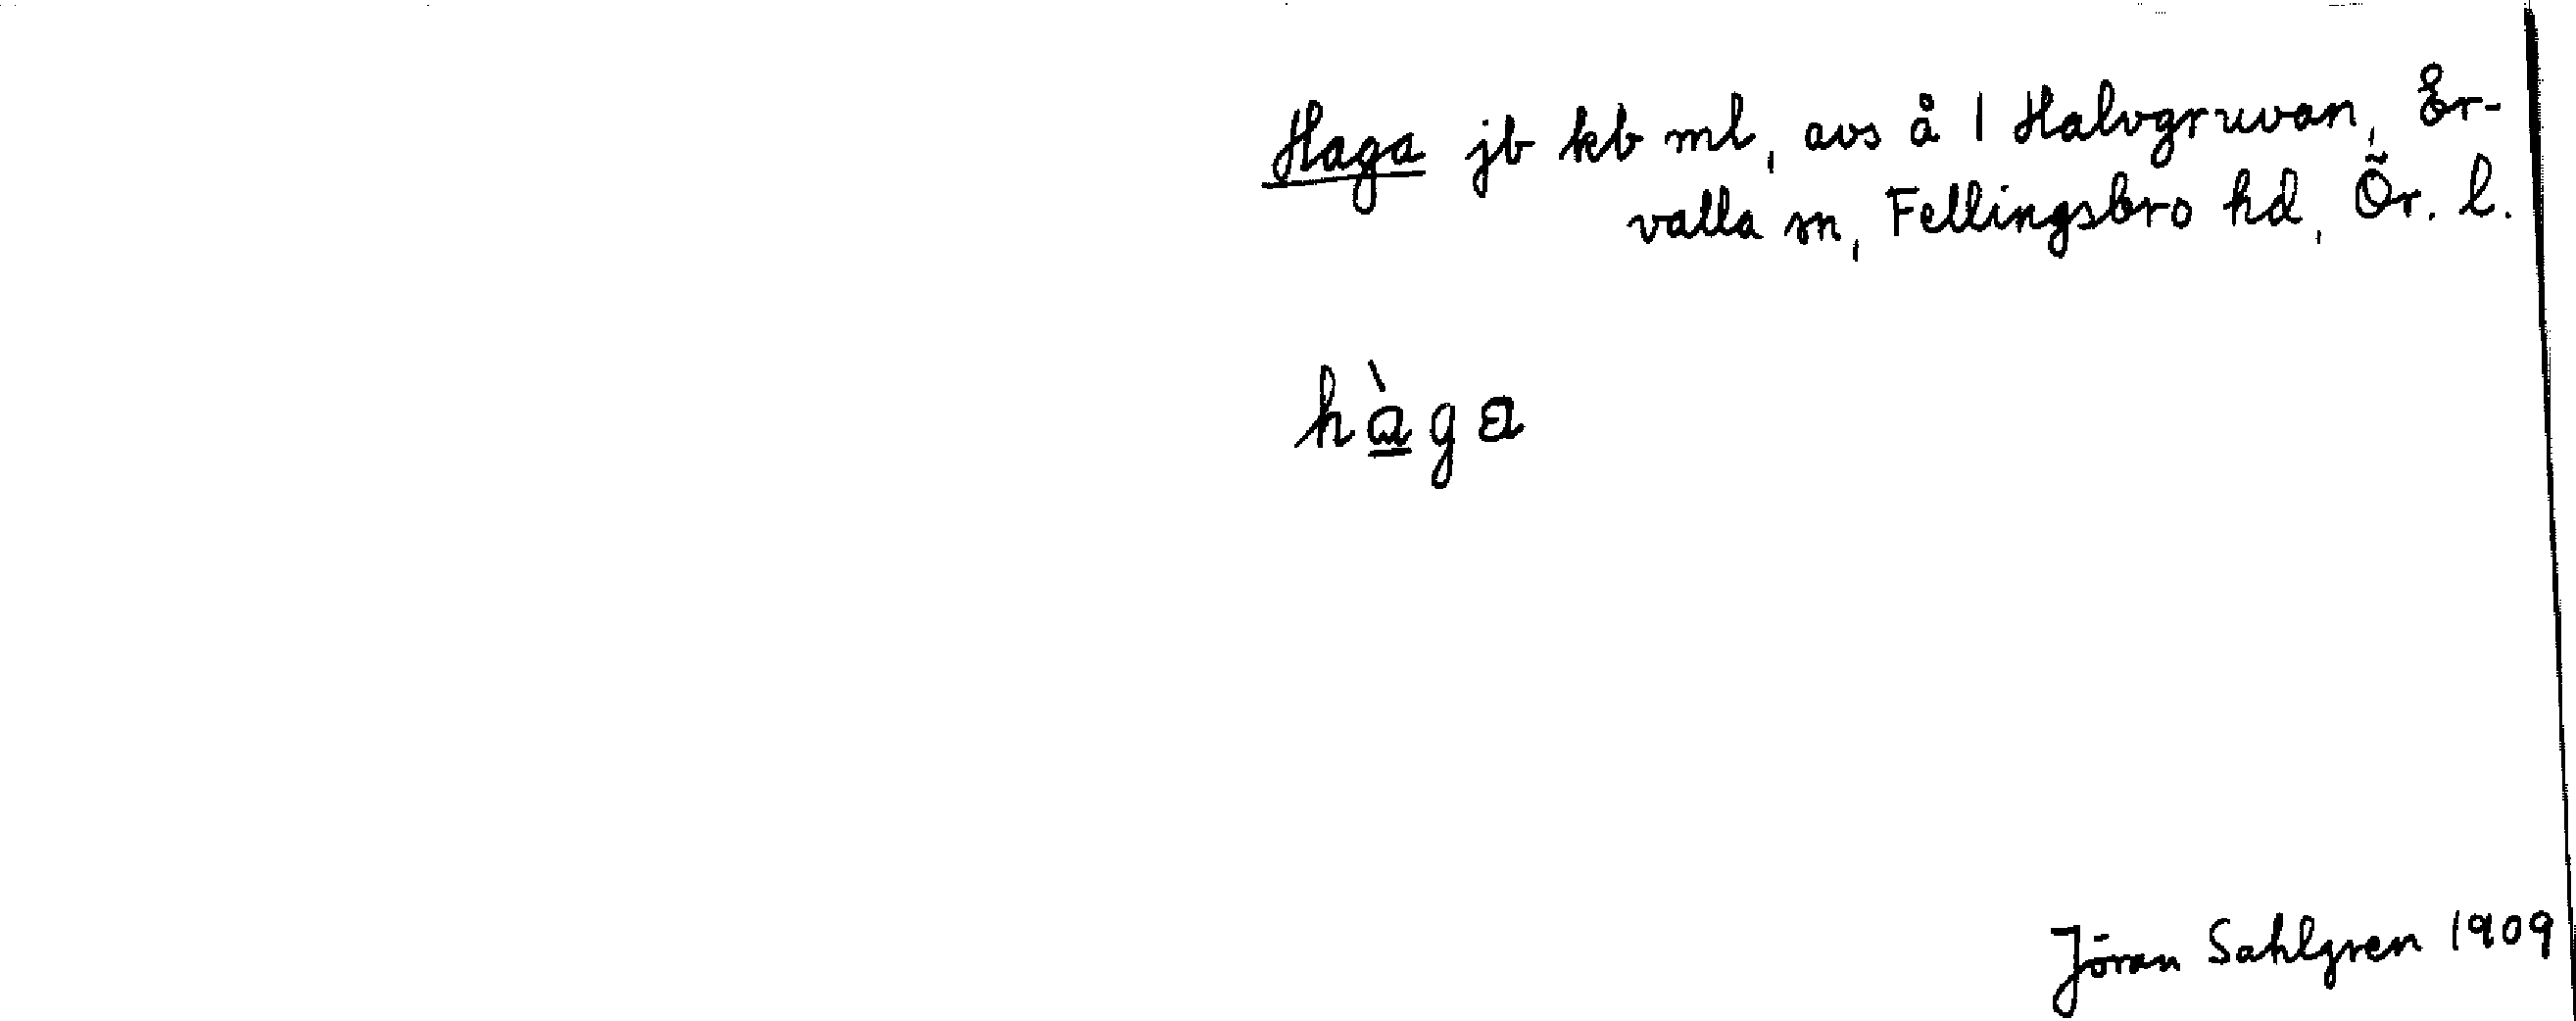 Haga jb kb ml, avs å 1 Halvgruvan, Er-
valla sn, Fellingsbro hd, Ör. l.
hàga
Jöran Sahlgren 1909